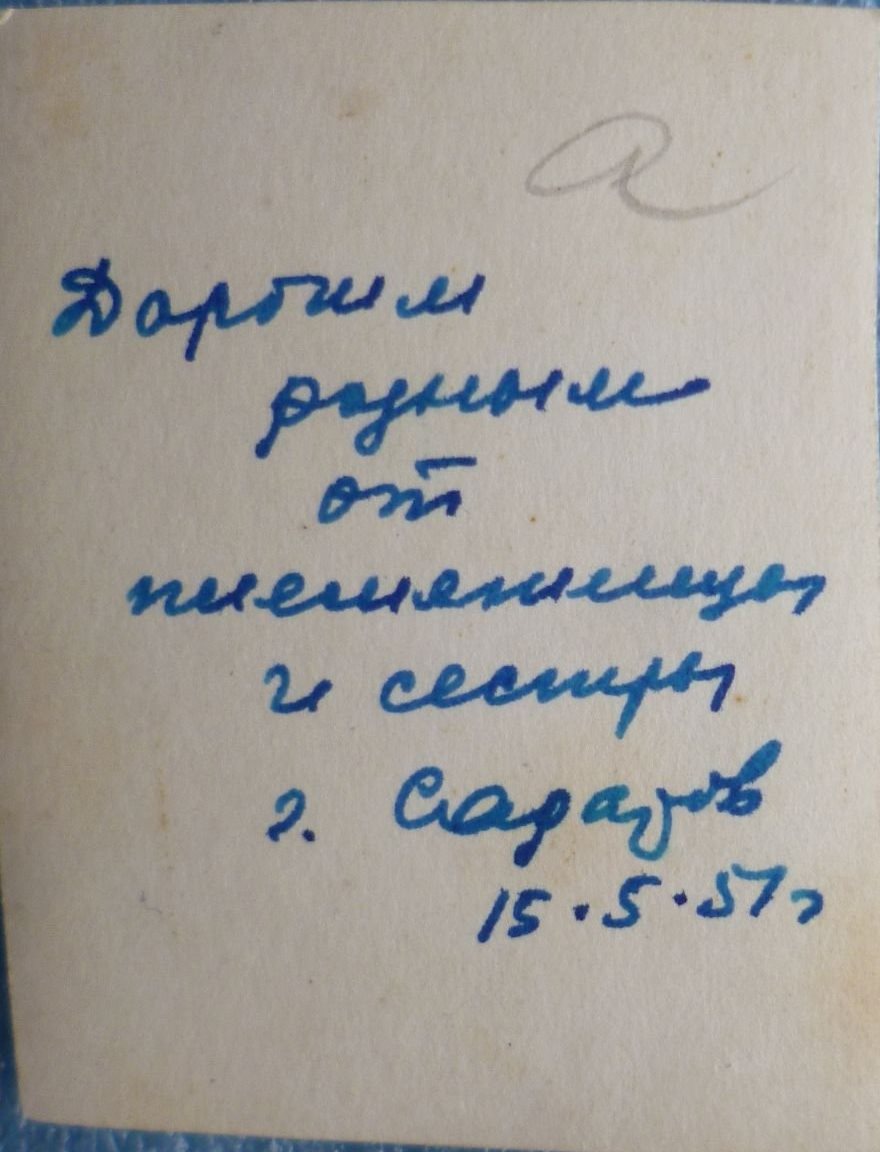 а
Дорогим
родным
от
племянницы
и сестры
г. Саратов
15.5.51г